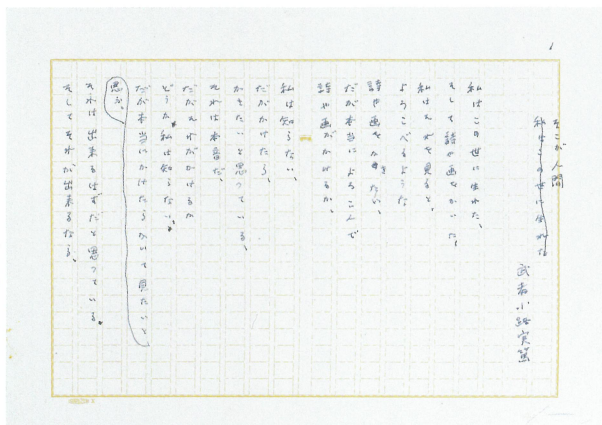 1
そこが人間
私はこの世に生れた
武者小路実篤
私はこの世に生れた、
そして詩や画をかいた。
私はそれを見ると、
よろこべるような
詩や画をかきたい、
だが本当によろこんで
詩や画がかけるか、
私は知らない、
だがかけたら、
かきたいと思っている、
それは本音だ、
だがそれがかけるか
どうか私は知らない。
だが本当にかけたらかいて見たいと
思う。
それは出来るはずだと思っている。
そしてそれが出来るなら、